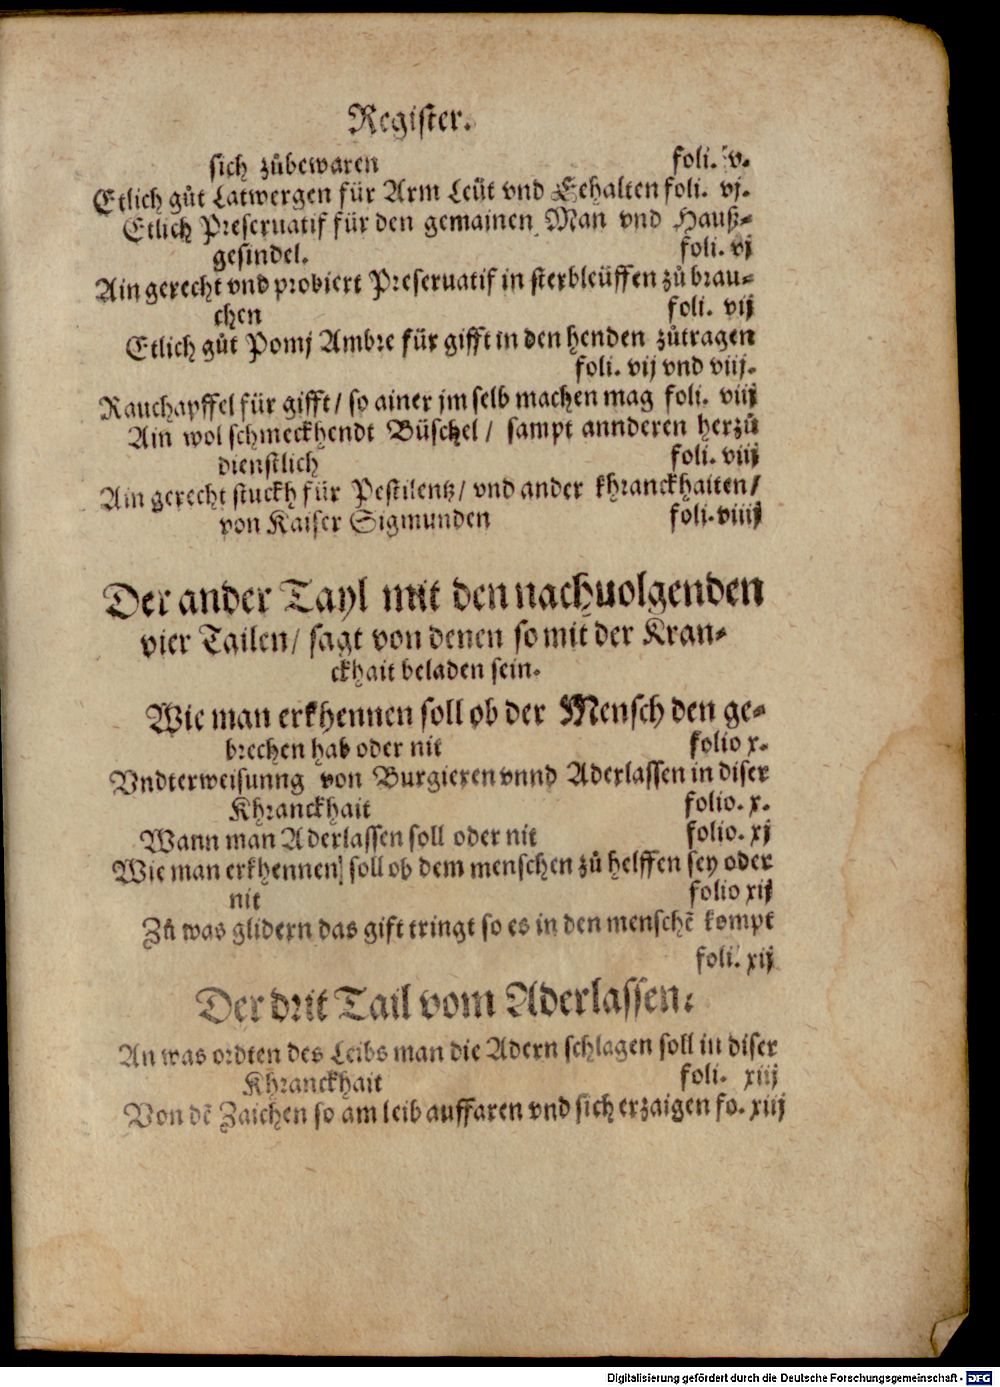 Register.
sich zůbewaren foli. v.
Etlich gůt Latwergen für Arm Leüt vnd Eehalten foli. vj.
Etlich Preseruatif für den gemainen Man vnd Hauß⸗
gesindel. foli. vj
Ain gerecht vnd probiert Preseruatif in sterbleüffen zů brau⸗
chen foli. vij
Etlich gůt Pomj Ambre für gifft in den henden zůtragen
foli. vij vnd viij.
Rauchapffel für gifft/ so ainer jm selb machen mag foli. viij
Ain wol schmeckhendt Büschel/ sampt annderen herzů
dienstlich foli. viij
Ain gerecht stuckh für Pestilentz/ vnd ander khranckhaiten/
von Kaiser Sigmunden foli. viiij
Der ander Tayl mit den nachuolgenden
vier Tailen/ sagt von denen so mit der Kran⸗
ckhait beladen sein.
Wie man erkhennen soll ob der Mensch den ge⸗
brechen hab oder nit folio x.
Vndterweisunng von Burgieren vnnd Aderlassen in diser
Khranckhait folio. x.
Wann man Aderlassen soll oder nit folio. xj
Wie man erkhennen soll ob dem menschen zů helffen sey oder
nit folio xij
Zů was glidern das gift tringt so es in den menschē kompt
foli. xij
Der drit Tail vom Aderlassen.
An was ordten des Leibs man die Adern schlagen soll in diser
Khranckhait foli. xiij
Von dē Zaichen so am leib auffaren vnd sich erzaigen fo. xiij
Digitalisierung gefördert durch die Deutsche Forschungsgemeinschaft - DFG